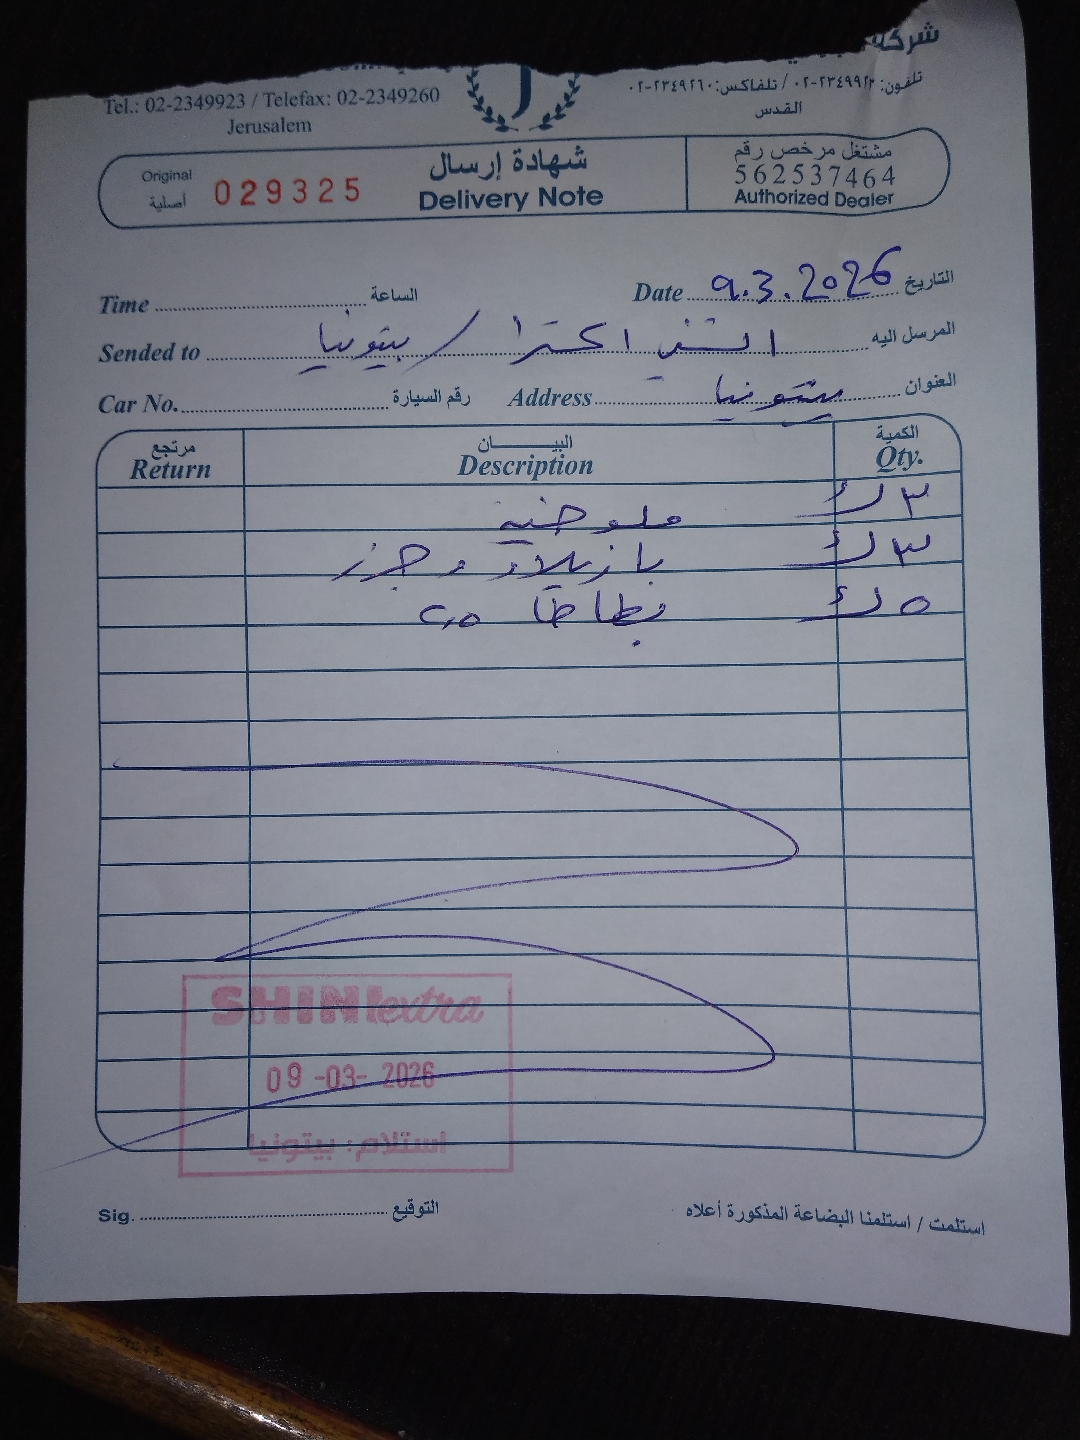 شركة
Tel.: 02-2349923 / Telefax: 02-2349260
تلفون: ٠٢-٢٣٤٩٩٢٣ / تلفاكس: ٠٢-٢٣٤٩٢٦٠
Jerusalem
القدس
J
Original أصلية 029325
شهادة إرسال
Delivery Note
مشتغل مرخص رقم
562537464
Authorized Dealer
Time الساعة
Date 9.3.2026 التاريخ
Sended to الشني اكسترا / بيتونيا المرسل اليه
Car No. رقم السيارة Address بيتونيا العنوان
مرتجع البيــــان الكمية
Return Description Qty.
٣ ك ملوخية
٣ ك بازيلاء وجزر
٥ ك بطاطا
SHINI extra
09-03-2026
استلام: بيتونيا
Sig. التوقيع
استلمت / استلمنا البضاعة المذكورة أعلاه